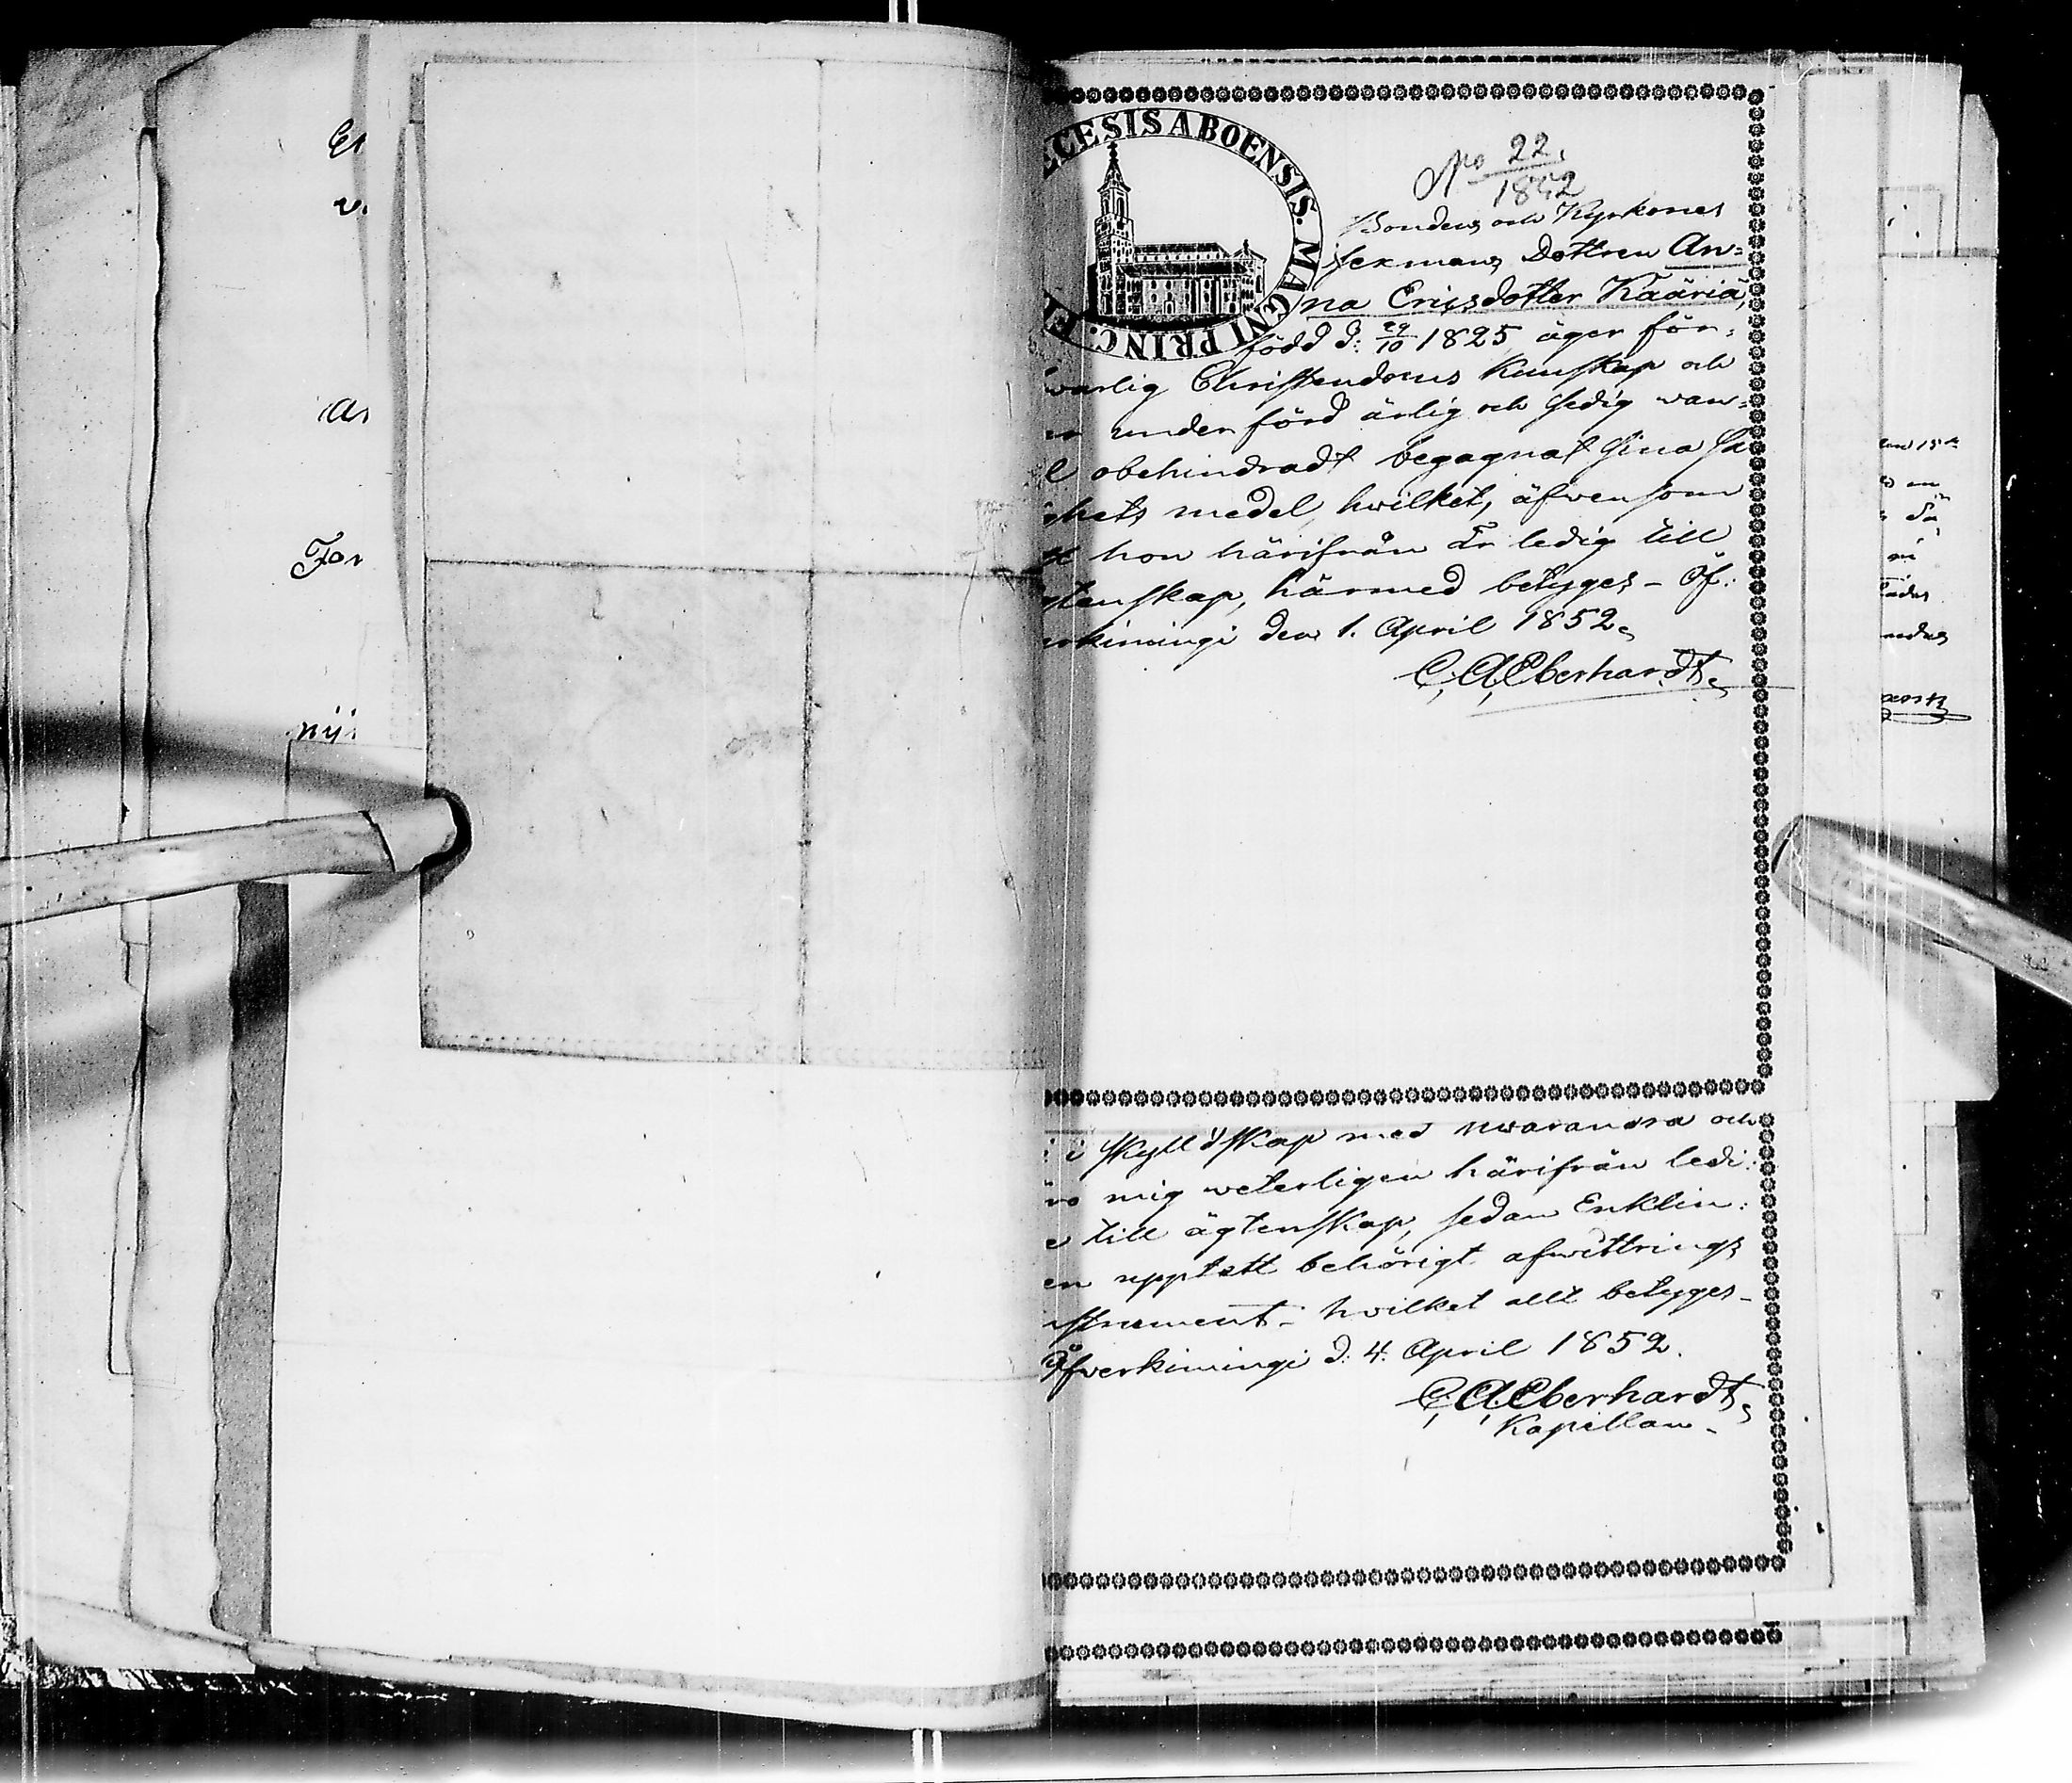 Et
v.
An
For
nij
ECESIS ABOENSIS. MAGNI PRINC. FI
No 22.
1852
Bondens och Kyrkones
sexmans Dottren An=
na Ericsdotter Kääriä,
född d: 29/10 1825 äger för=
svarlig Christendoms kunskap och
under förd ärlig och sedig wan=
l obehindradt begagnat sina Sa
hets medel, hvilket, äfvensom
hon härifrån är ledig till
gtenskap, härmed betyges – Öf:
erkimingi den 1. April 1852.
C. A. Eberhardt.
i skyldskap med hwarandra och
ro mig weterligen härifrån ledi:
e till ägtenskap, sedan Enklin:
en upptett behörigt afwittrings
nstrument – hvilket allt betyges –
Öfverkimingi d: 4. April 1852.
C. A. Eberhardt.
Kapellan.